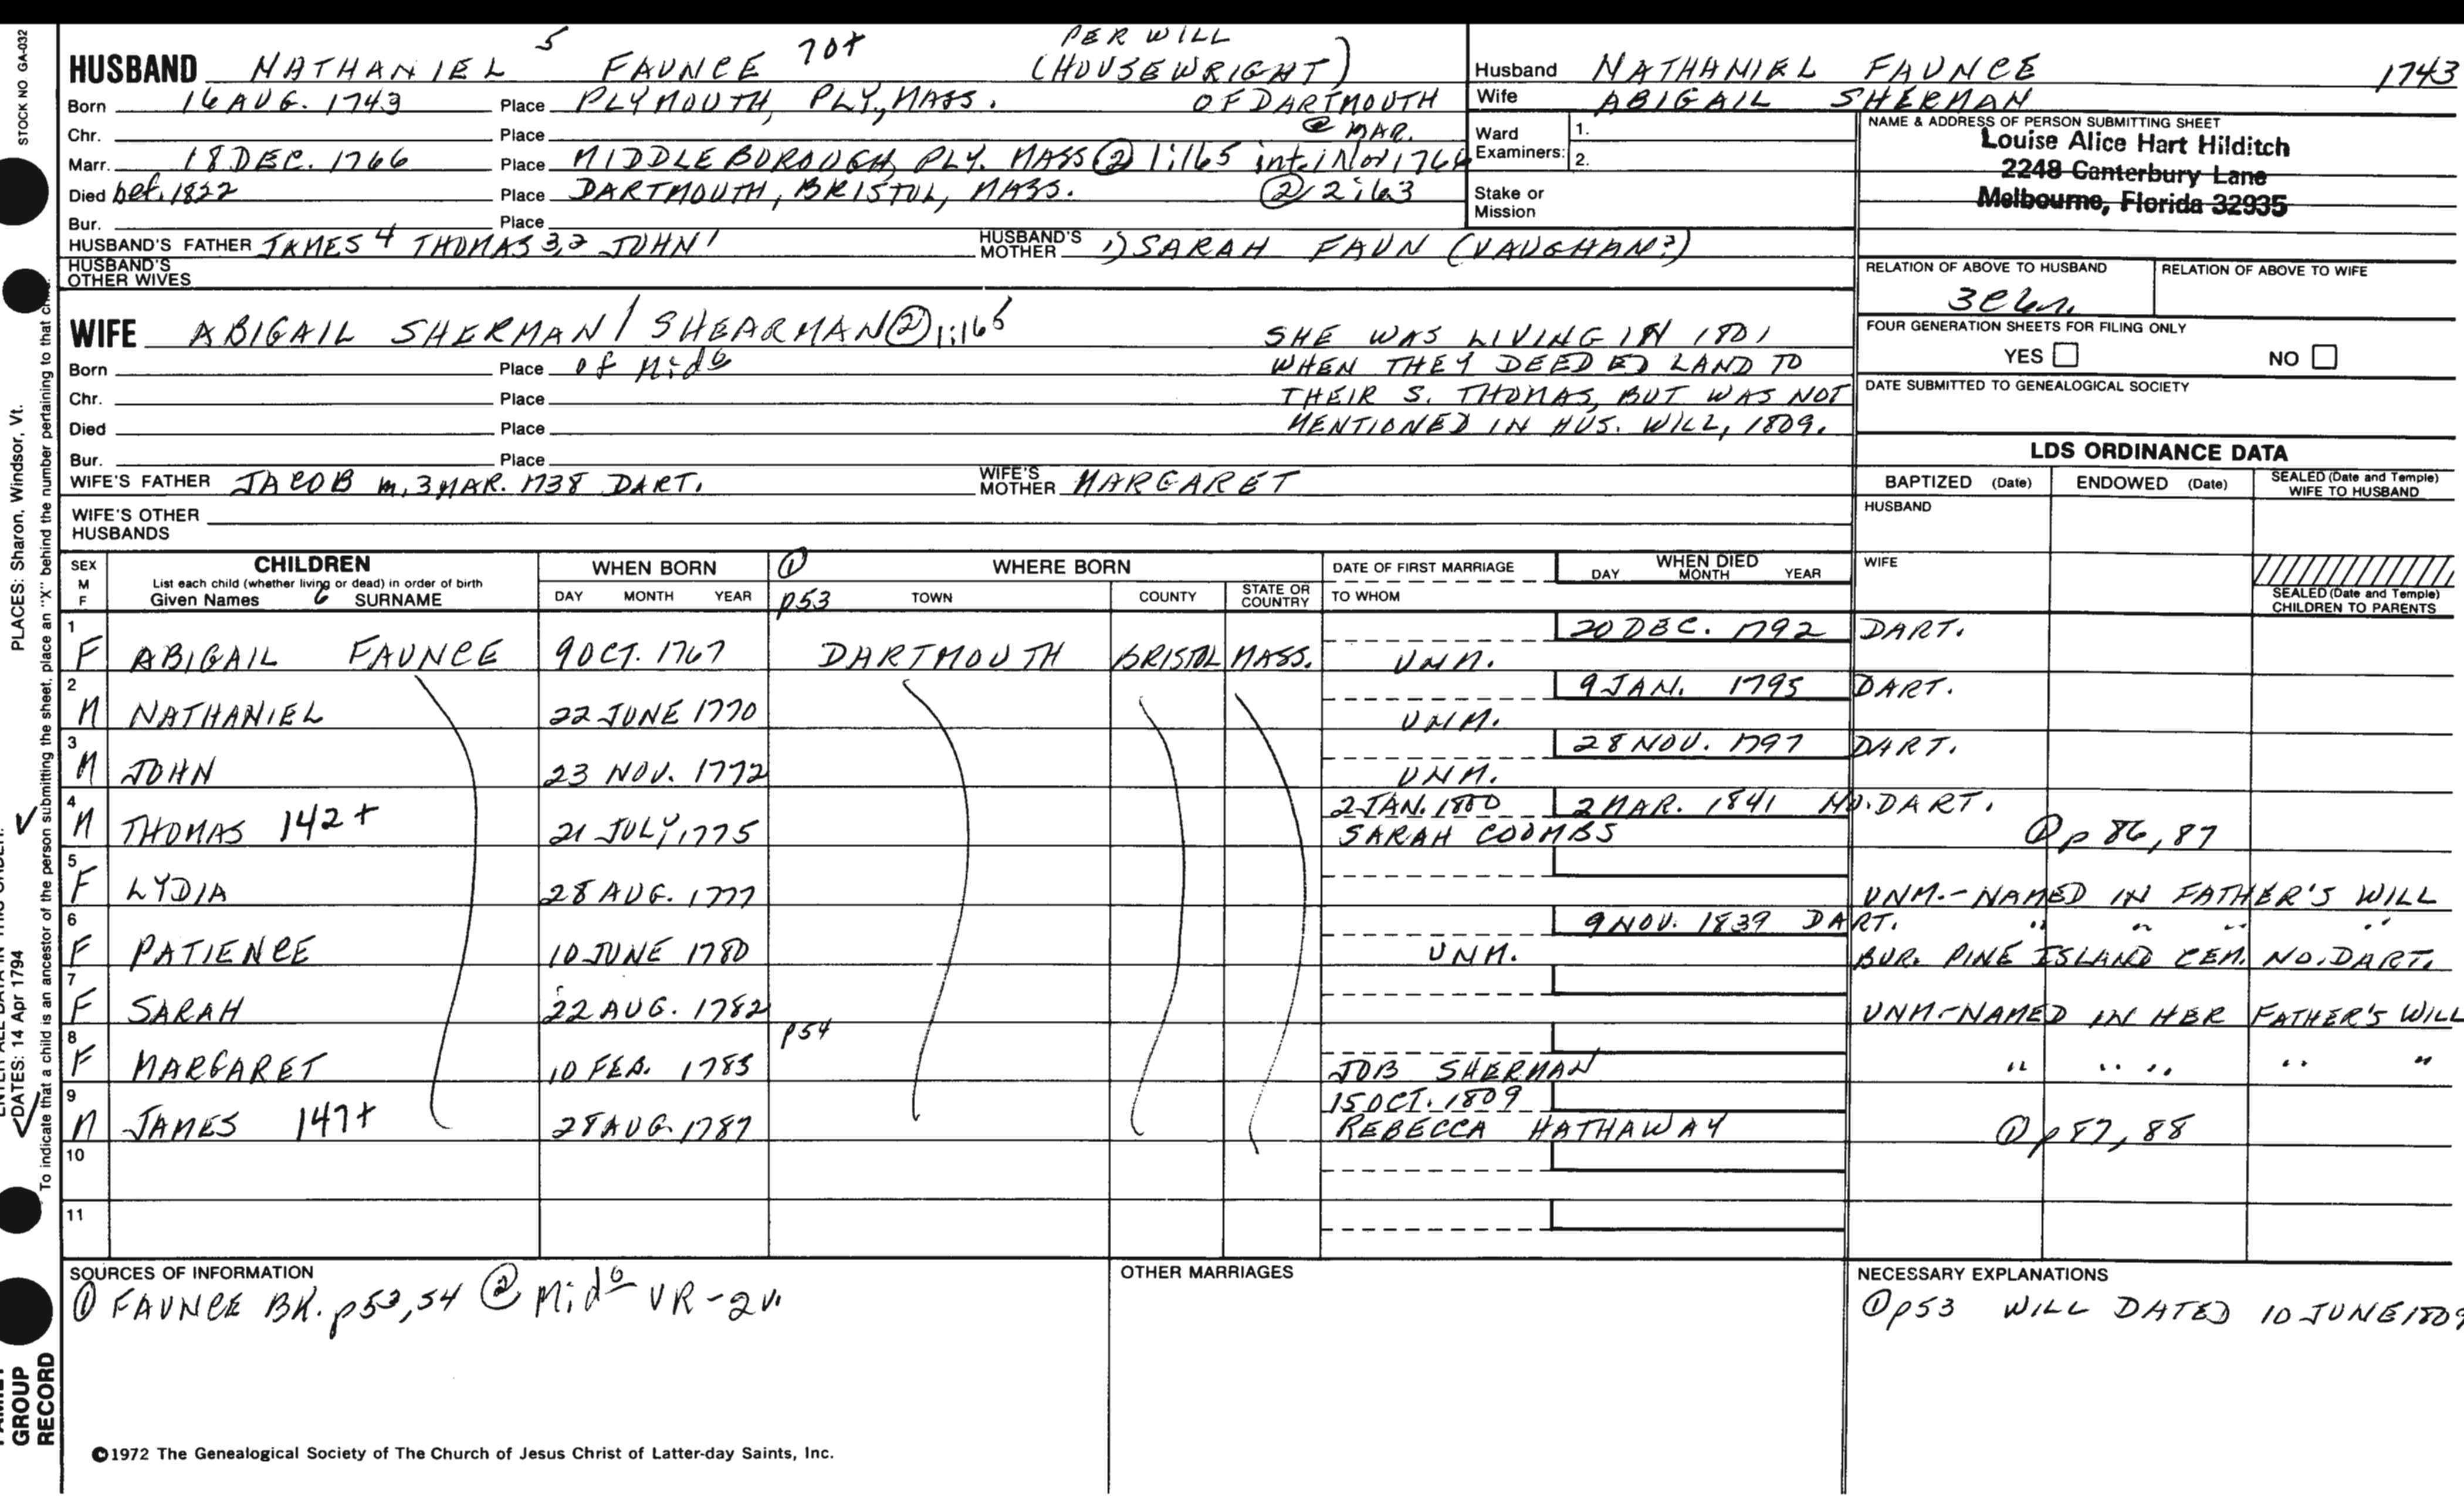 STOCK NO GA-032
PLACES: Sharon, Windsor, Vt.
DATES: 14 Apr 1794
To indicate that a child is an ancestor of the person submitting the sheet, place an "X" behind the number pertaining to that
GROUP
RECORD
PER WILL
HUSBAND NATHANIEL 5 FAUNCE 70+ (HOUSEWRIGHT)
Born 16 AUG. 1743 Place PLYMOUTH, PLY., MASS. OF DARTMOUTH
Chr. Place @ MAR.
Marr. 18 DEC. 1766 Place MIDDLEBOROUGH, PLY. MASS ② 1:165 int. 1 Nov 1766
Died bef. 1822 Place DARTMOUTH, BRISTOL, MASS. ② 2:63
Bur. Place
HUSBAND'S FATHER JAMES 4 THOMAS 3,2 JOHN 1 HUSBAND'S MOTHER 1) SARAH FAUN (VAUGHAN?)
HUSBAND'S OTHER WIVES
WIFE ABIGAIL SHERMAN / SHEARMAN ② 1:165
Born Place of Mid o
Chr. Place
Died Place
Bur. Place
SHE WAS LIVING IN 1801
WHEN THEY DEEDED LAND TO
THEIR S. THOMAS, BUT WAS NOT
MENTIONED IN HUS. WILL, 1809.
WIFE'S FATHER JACOB m. 3 MAR. 1738 DART. WIFE'S MOTHER MARGARET
WIFE'S OTHER HUSBANDS
Husband NATHANIEL FAUNCE 1743
Wife ABIGAIL SHERMAN
Ward Examiners: 1.
2.
Stake or Mission
NAME & ADDRESS OF PERSON SUBMITTING SHEET
Louise Alice Hart Hilditch
2248 Canterbury Lane
Melbourne, Florida 32935
RELATION OF ABOVE TO HUSBAND RELATION OF ABOVE TO WIFE
FOUR GENERATION SHEETS FOR FILING ONLY
YES NO
DATE SUBMITTED TO GENEALOGICAL SOCIETY
LDS ORDINANCE DATA
BAPTIZED (Date) ENDOWED (Date) SEALED (Date and Temple) WIFE TO HUSBAND
HUSBAND
WIFE
SEALED (Date and Temple) CHILDREN TO PARENTS
SEX M F CHILDREN WHEN BORN ① WHERE BORN DATE OF FIRST MARRIAGE WHEN DIED
List each child (whether living or dead) in order of birth
Given Names 6 SURNAME DAY MONTH YEAR p53 TOWN COUNTY STATE OR COUNTRY TO WHOM DAY MONTH YEAR
1 F ABIGAIL FAUNCE 9 OCT. 1767 DARTMOUTH BRISTOL MASS. UNM. 20 DEC. 1792 DART.
2 M NATHANIEL 22 JUNE 1770 UNM. 9 JAN. 1795 DART.
3 M JOHN 23 NOV. 1772 UNM. 28 NOV. 1797 DART.
4 M THOMAS 142+ 21 JULY, 1775 2 JAN. 1800 SARAH COOMBS 2 MAR. 1841 NO. DART. ① p 86, 87
5 F LYDIA 28 AUG. 1777 UNM. - NAMED IN FATHER'S WILL
6 F PATIENCE 10 JUNE 1780 UNM. 9 NOV. 1839 DART. " " " "
BUR. PINE ISLAND CEM. NO. DART.
7 F SARAH 22 AUG. 1782 UNM-NAMED IN HER FATHER'S WILL
p54
8 F MARGARET 10 FEB. 1785 JOB SHERMAN " " " " "
9 M JAMES 147+ 28 AUG. 1787 15 OCT. 1809 REBECCA HATHAWAY ① p 87, 88
10
11
SOURCES OF INFORMATION
① FAUNCE BK. p53, 54 ② Mid o VR - 2v.
OTHER MARRIAGES
NECESSARY EXPLANATIONS
① p53 WILL DATED 10 JUNE 1809
©1972 The Genealogical Society of The Church of Jesus Christ of Latter-day Saints, Inc.